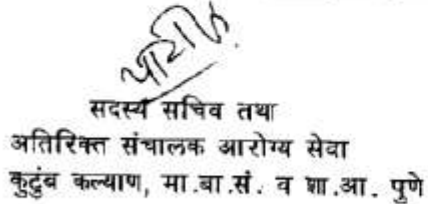 सदस्य सचिव तथा
अतिरिक्त संचालक आरोग्य सेवा
कुटुंब कल्याण, मा.बा.सं. व शा.आ. पुणे